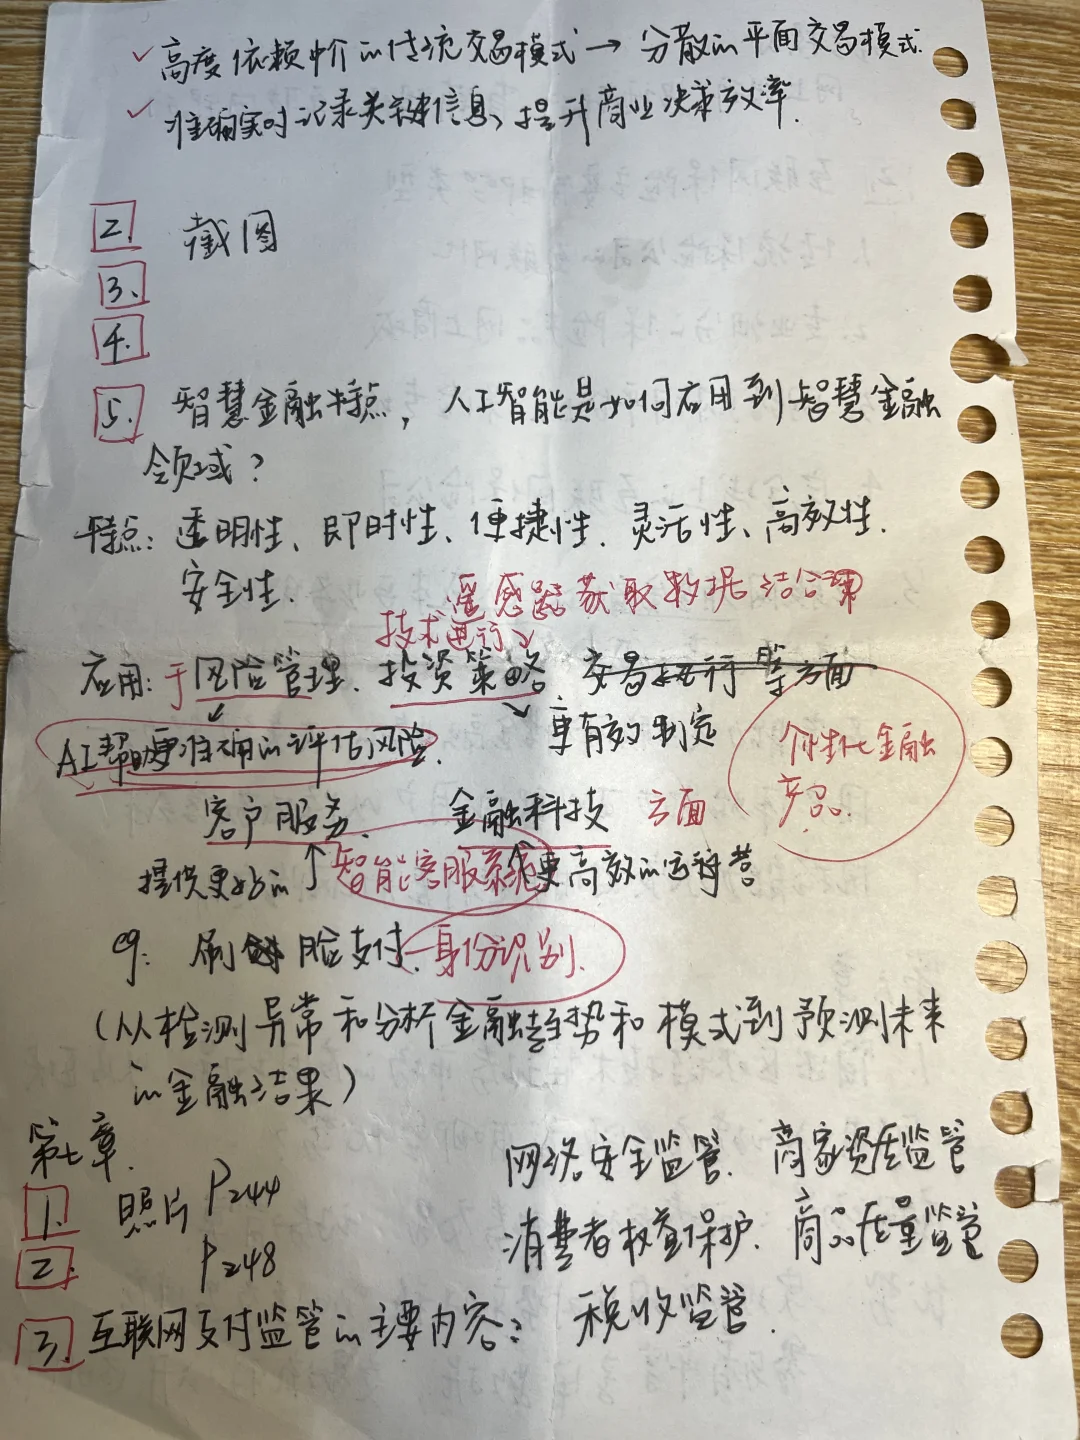 ✓高度依赖中介的传统交易模式→分散的平面交易模式.
✓准确实时记录关键信息,提升商业决策效率.
2. 截图
3、
4.
5. 智慧金融特点,人工智能是如何应用到智慧金融
领域?
特点:透明性、即时性、便捷性.灵活性、高效性.
安全性.
遥感 获取数据 结合
技术进行
应用:于风险管理、投资策略、交易执行等方面
AI帮助更准确的评估风险.
更有效制定
个性化金融
产品.
客户服务、 金融科技 方面
提供更好的 ↑智能客服系统 ↑更高效的运营
eg: 刷脸支付、身份识别.
(从检测异常和分析金融趋势和模式到预测未来
的金融结果)
第七章.
1. 照片 P244
2. P248
网络安全监管. 商家资质监管
消费者权益保护. 商品质量监管
3. 互联网支付监管的主要内容: 税收监管.